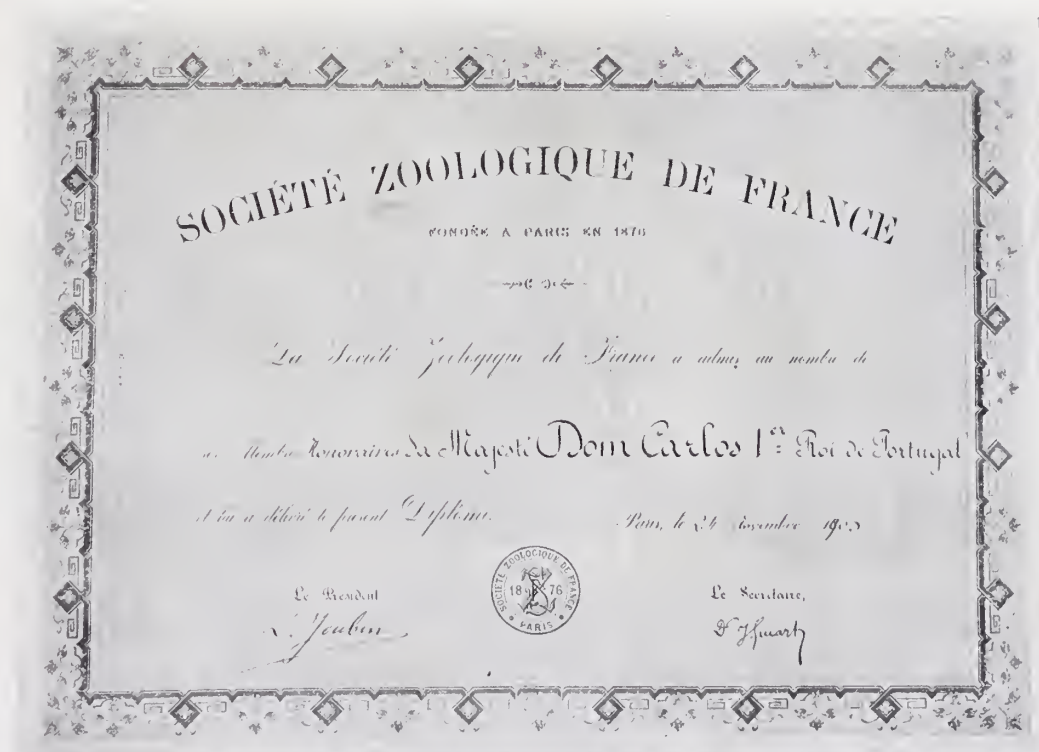 SOCIÉTÉ ZOOLOGIQUE DE FRANCE
FONDÉE A PARIS EN 1876
La Société Zoologique de France a admis au nombre de
Membres Honoraires Sa Majesté Dom Carlos 1er Roi de Portugal
et lui a délivré le présent Diplôme.
Paris, le 24 novembre
Le Président
Le Secrétaire,
L. Joubin
SOCIÉTÉ ZOOLOGIQUE DE FRANCE
1876
PARIS